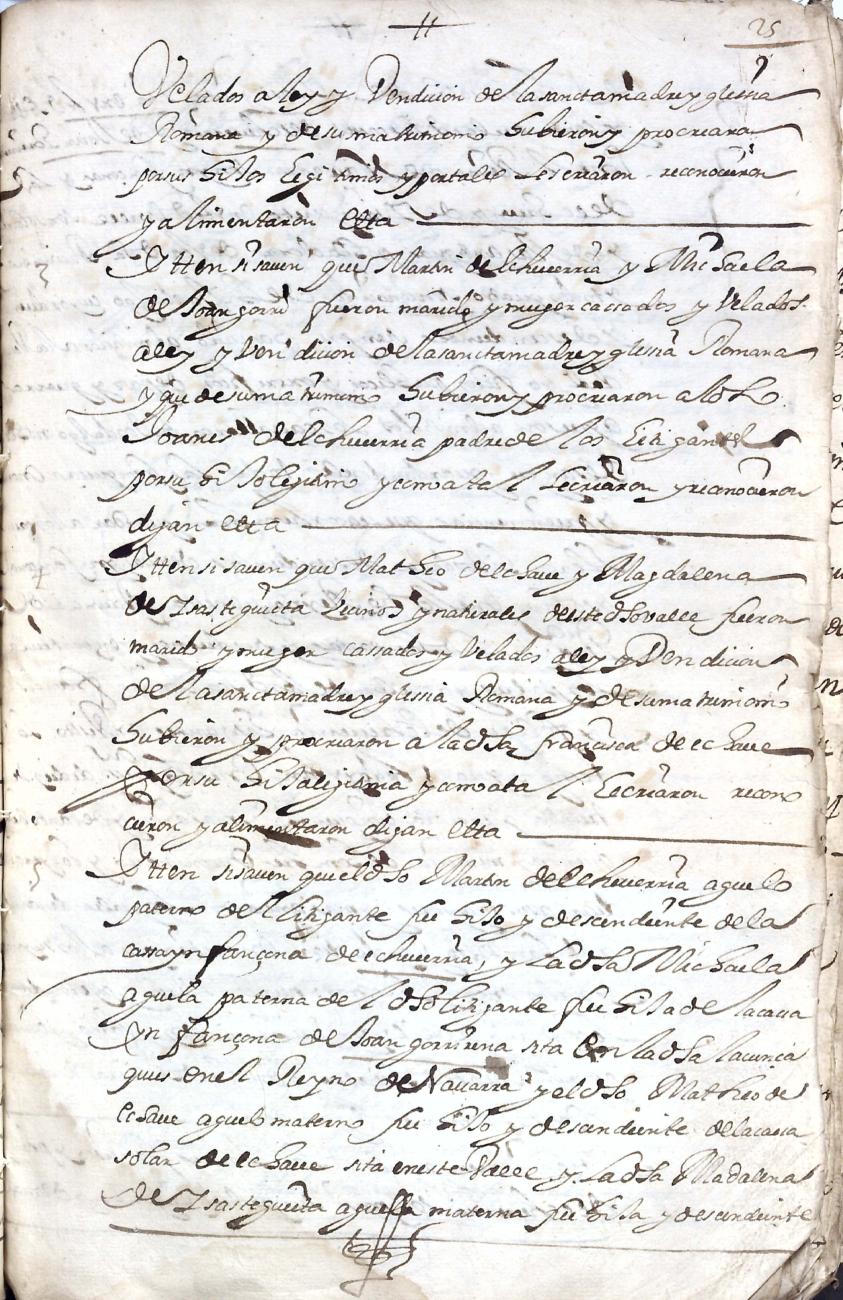 25
Velados a ley y Vendicion de la sancta madre yglessia
Romana y de su matrimonio hubieron y procrearon
por sus hijos legitimos y por tales les criaron reconocieron
y alimentaron etta
3 Ytten si saven que Martin de Echeverria y Michaela
de Joangorri fueron marido y muger cassados y Velados
a ley y Vendicion de la sancta madre yglessia Romana
y que de su matrimonio hubieron y procriaron al dho
Joanes de Echeverria padre de los litigantes
por su hijo lejitimo y como a tal le criaron y reconocieron
digan etta
4 Ytten si saven que Matheo de echave y Magdalena
de Ysasteguieta Vecinos y naturales deste dho valle fueron
marido y muger cassados y Velados a ley y Vendicion
de la sancta madre yglessia Romana y de su matrimonio
hubieron y procriaron a la dha francisca de echave
por su hija lejitima y como a tal le criaron recono
cieron y alimentaron digan etta
5 Ytten si saven que el dho Martin de Echeverria aguelo
paterno del litigante fue hijo y descendiente de la
cassa ynfançona de echeverria, y la dha Michaela
aguela paterna del dho litigante fue hija de la cassa
ynfançona de Joangorrirena sita en la dha
que es en el Reyno de Navarra y el dho Matheo de
echave aguelo materno fue hijo y descendiente de la cassa
solar de echave sita en este Valle y la dha Madalena
de Ysasteguieta aguela materna fue hija y descendiente